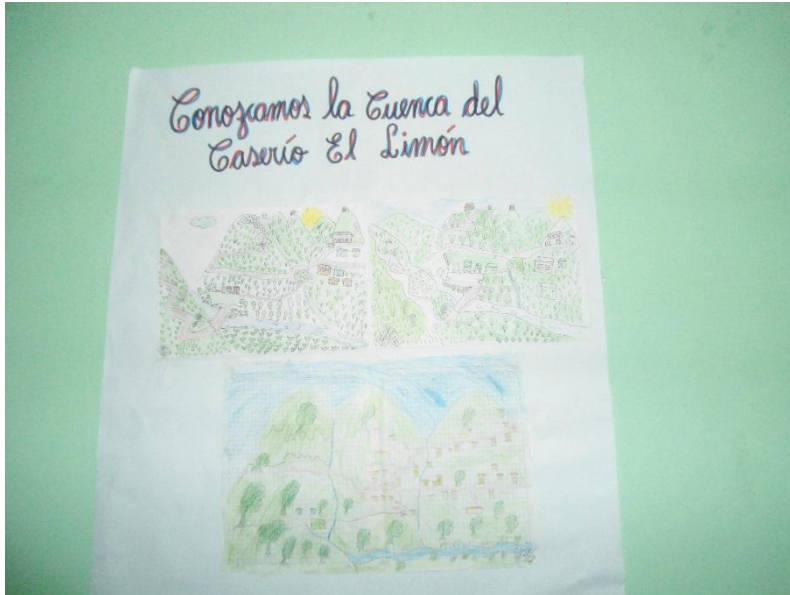 Conozcamos la Cuenca del
Caserío El Limón